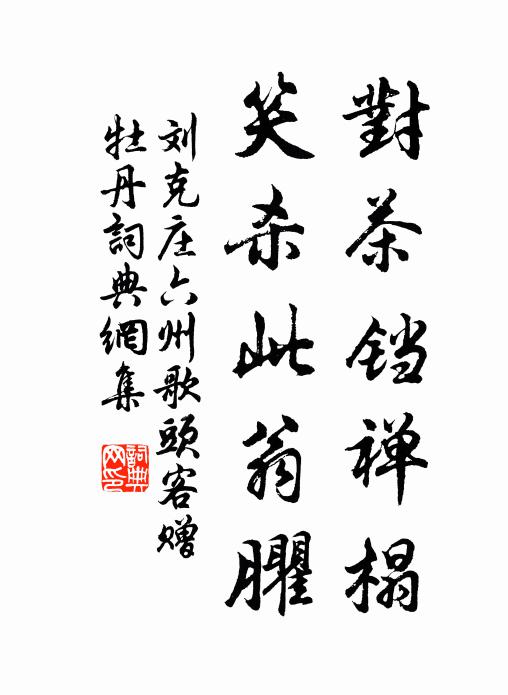 對茶铛禅榻
笑杀此翁臞
刘克庄六州歌頭客赠
牡丹詞典網集
詞典网印